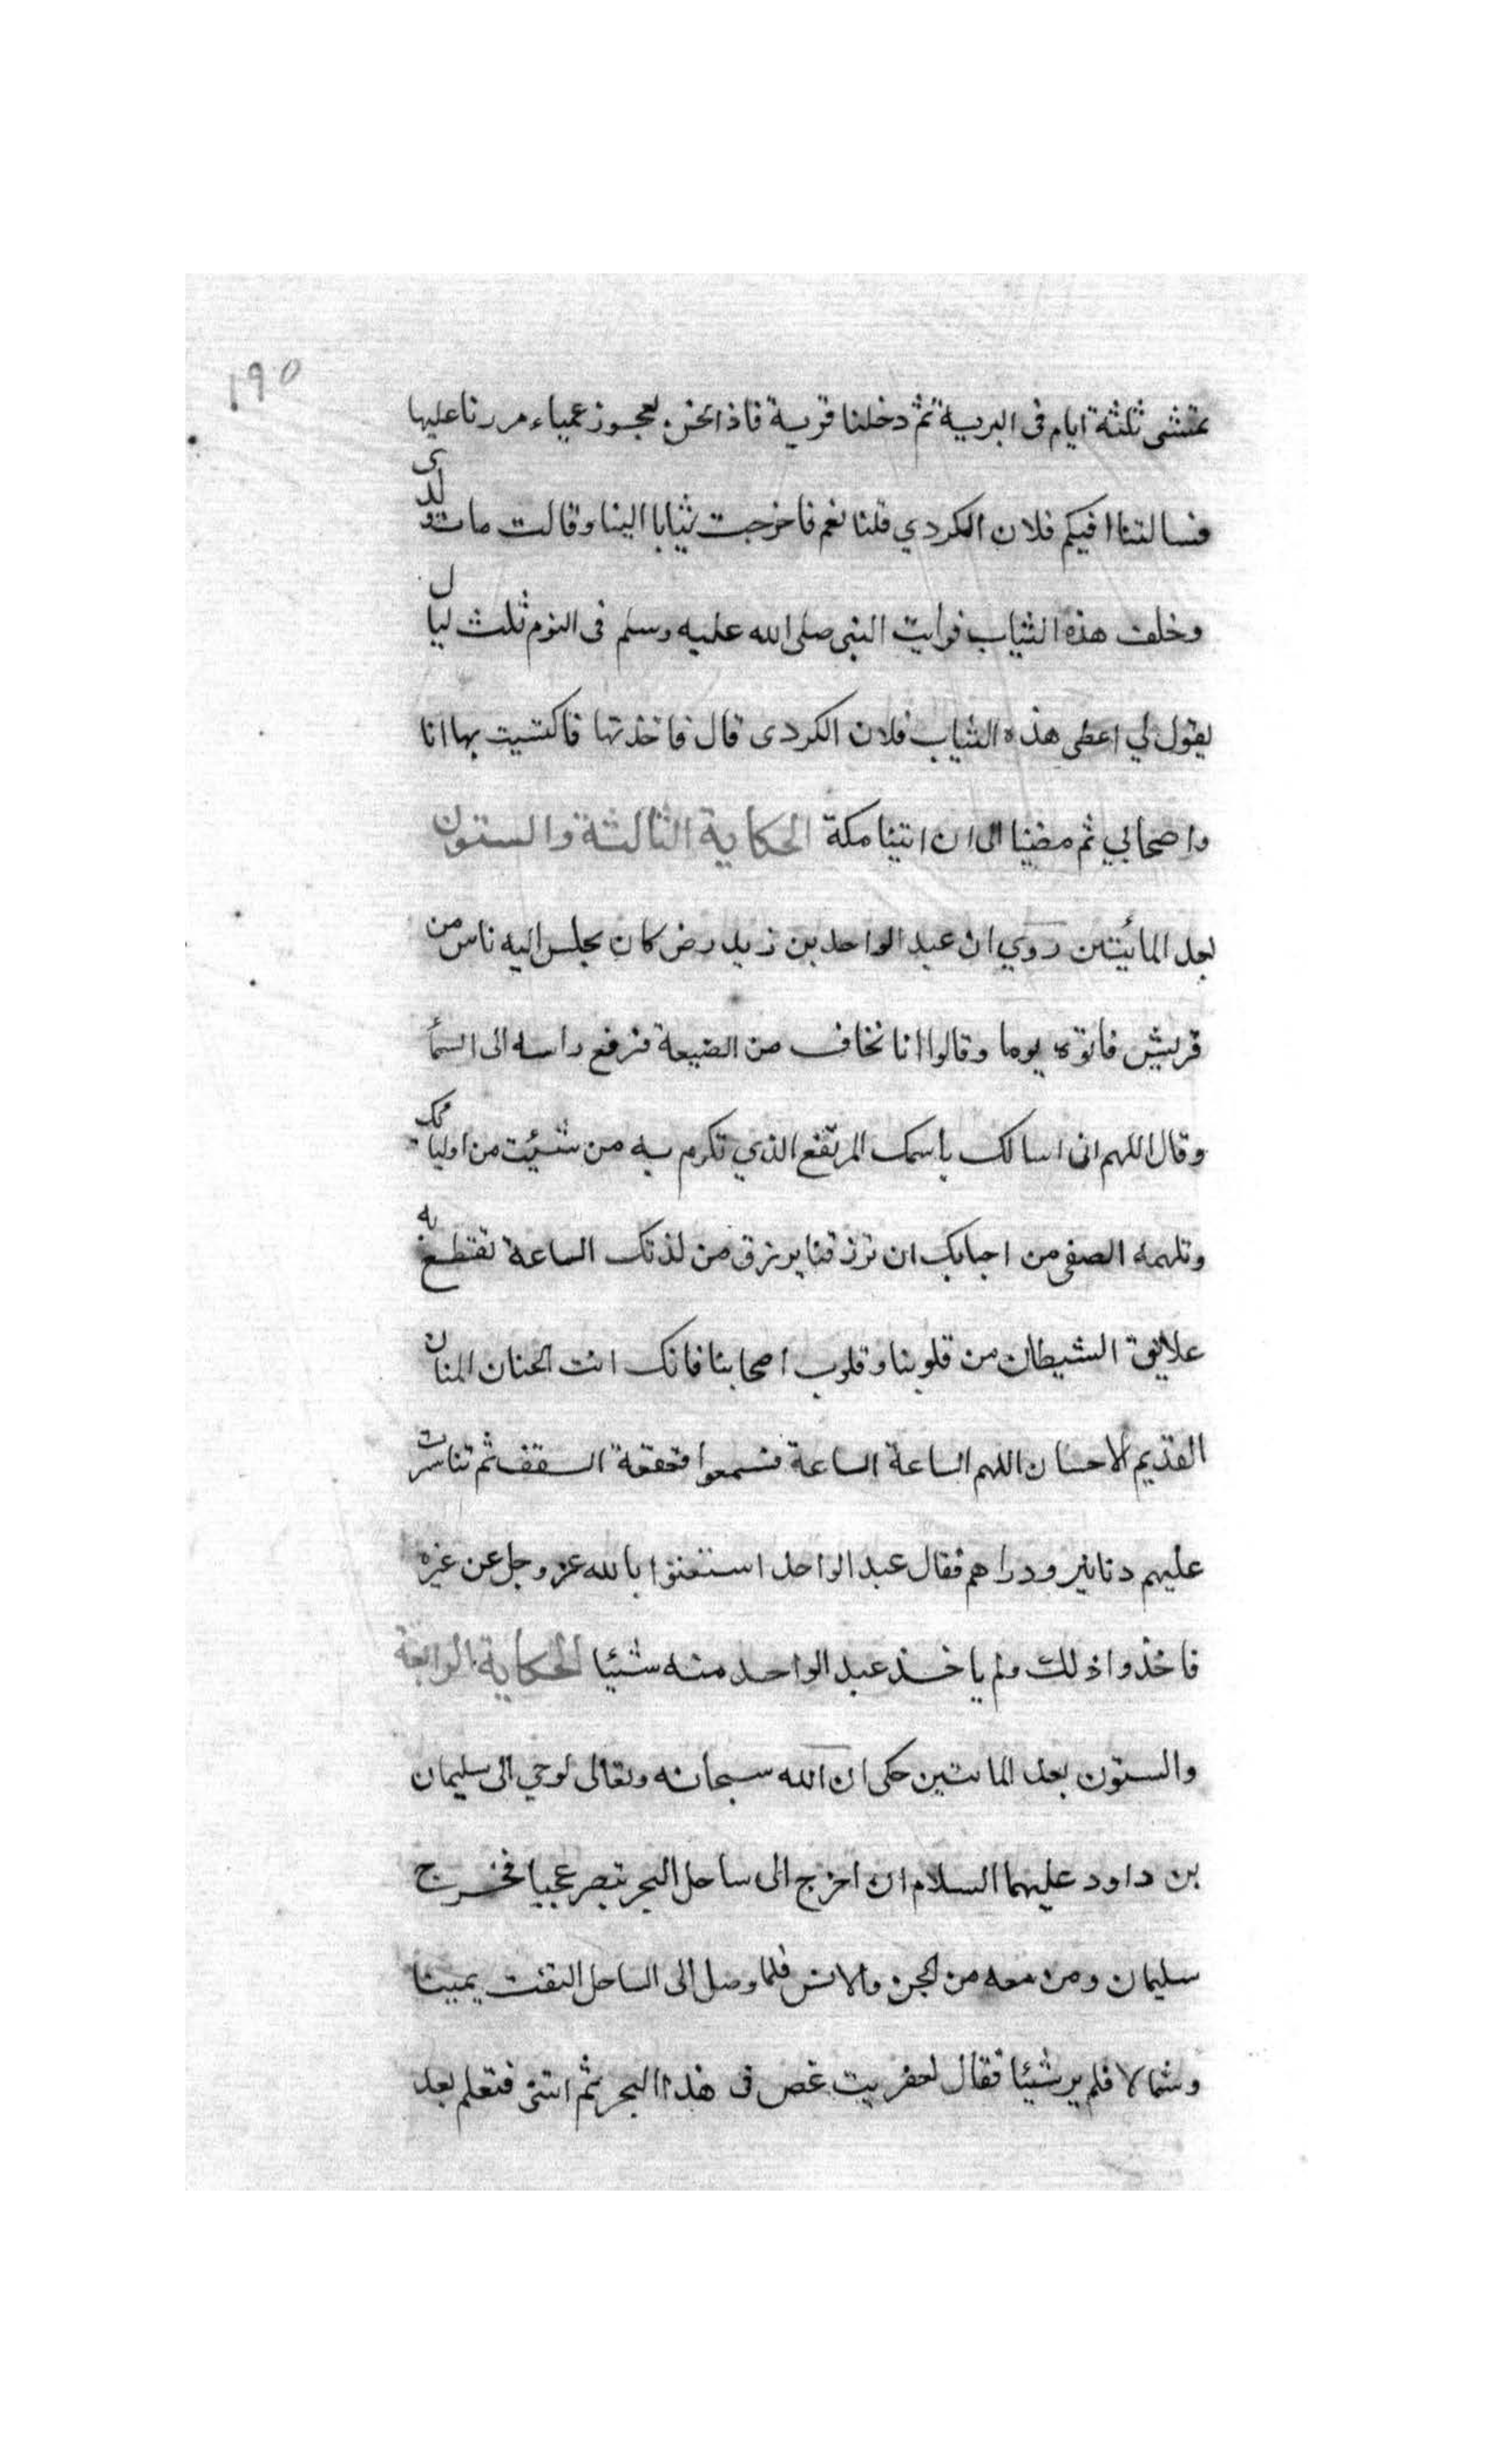 ١٩٥
نمشى ثلثة ايام فى البرية ثم دخلنا قرية فاذا نحن بعجوز عمياء مررنا عليها
فسالتنا افيكم فلان الكردي قلنا نعم فاخرجت ثيابا الينا وقالت مات ولدى
وخلف هذه الثياب فرايت النبى صلى الله عليه وسلم فى النوم ثلث ليال
يقول لي اعطى هذه الثياب فلان الكردى قال فاخذتها فاكتسيت بها انا
واصحابي ثم مضينا الى ان اتينا مكة الحكاية الثالثة والستون
بعد المأيتين روي ان عبد الواحد بن زيد رض كان يجلس اليه ناس من
قريش فاتوه يوما وقالوا انا نخاف من الضيعة فرفع راسه الى السمأ
وقال اللهم انى اسالك باسمك المرتفع الذي تكرم به من شئيت من اوليائك
وتلهمه الصفى من احبابك ان ترزقنا برزق من لدنك الساعة تقتطع به
علايق الشيطان من قلوبنا وقلوب اصحابنا فانك انت الحنان المنان
القديم الاحسان اللهم الساعة الساعة فسمعوا قعقعة السقف ثم تناثرت
عليهم دنانير ودراهم فقال عبد الواحد استغنوا بالله عز وجل عن غيره
فاخذوا ذلك ولم ياخذ عبد الواحد منه شئيا الحكاية الرابعة
والستون بعد المائتين حكى ان الله سبحانه وتعالى اوحي الى سليمان
بن داود عليهما السلام ان اخرج الى ساحل البحر تبصر عجبا فخرج
سليمان ومن معه من الجن والانس فلما وصل الى الساحل التفت يمينا
وشمالا فلم ير شئيا فقال لعفريت غص فى هذا البحر ثم ائتنى فتعلم بعد